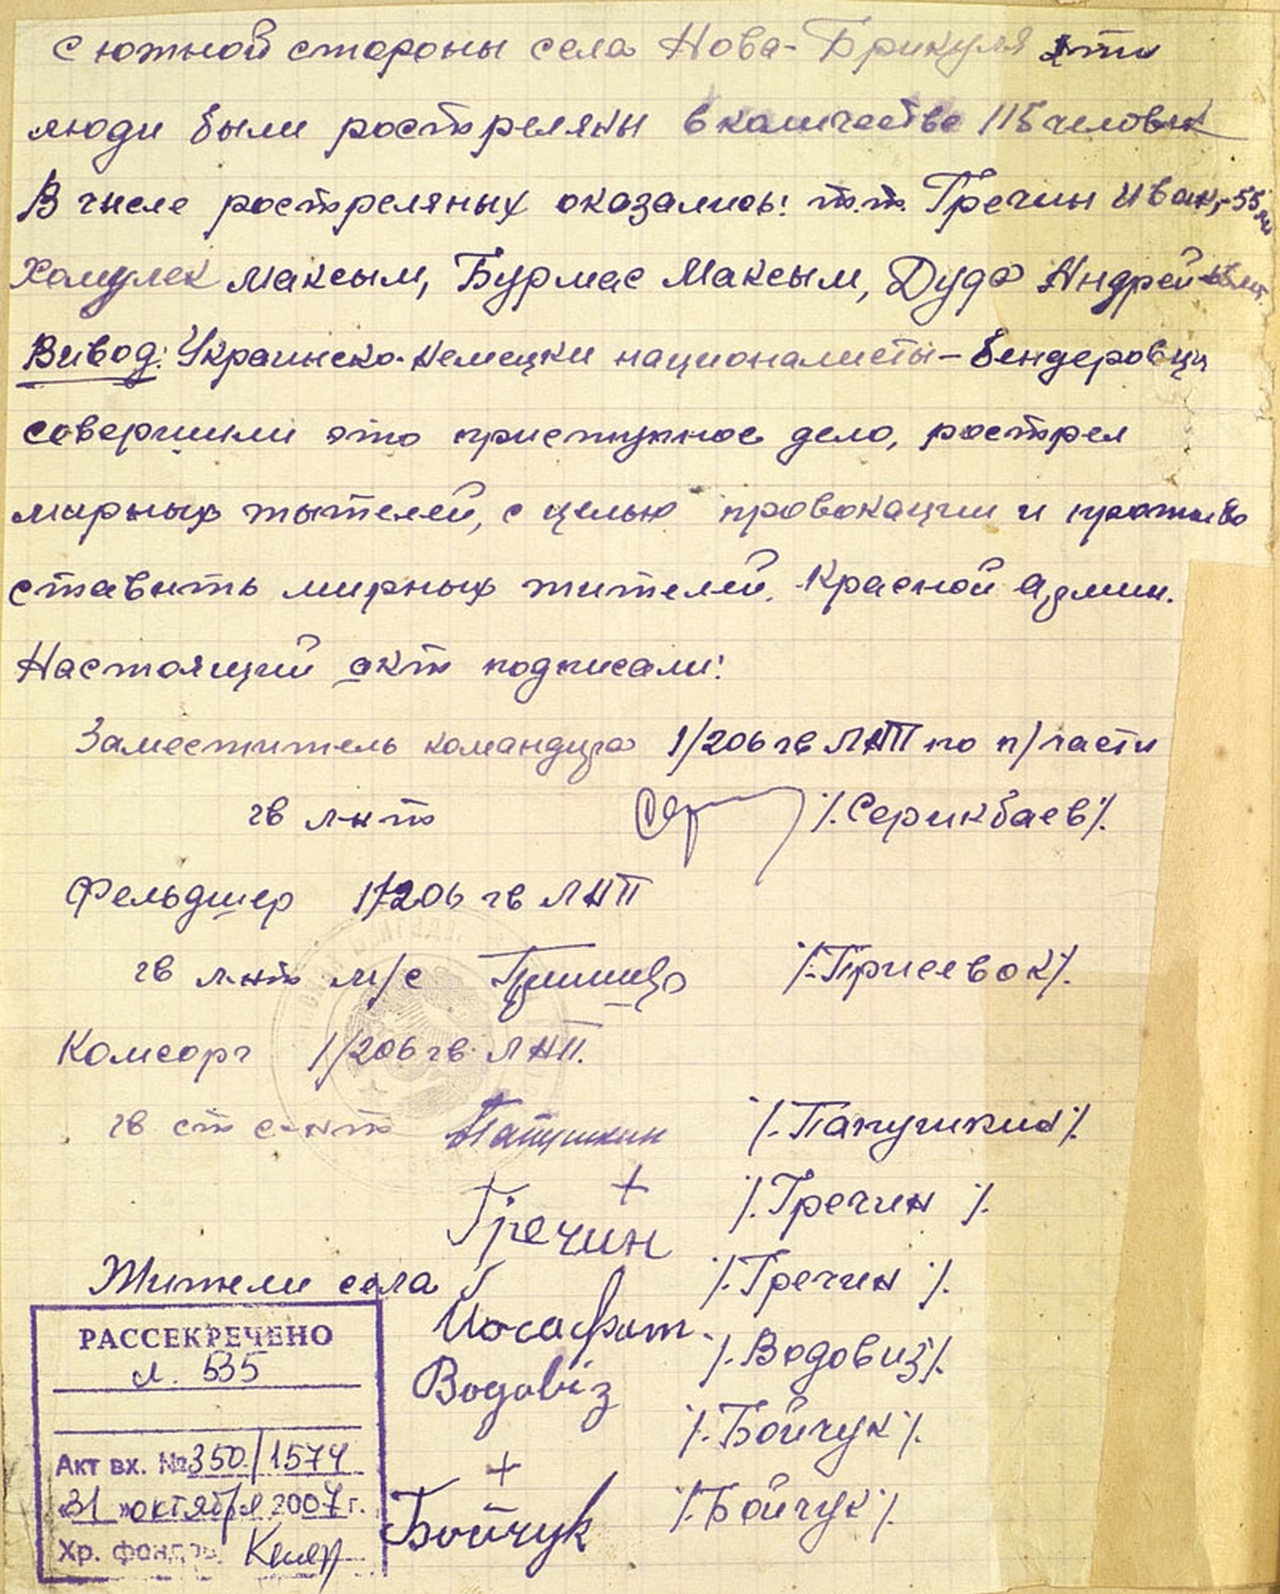 с южной стороны села Нова-Брикуля эти
люди были росстреляны в количестве 115 человек
В числе росстреляных оказались: т.т. Гречин Иван,-55
Хомулек Максым, Бурмас Максым, Дуда Андрей
Вивод: Украинско-немецки националисты-бендеровци
совершили это приступное дело, росстрел
мирных жытелей, с целью провокации и противо
ставить мирных жителей. Красной Армии.
Настоящий акт подписали:
Заместитель командира 1/206 гв ЛНП по п/части
гв л-нт Сер /.Серикбаев/.
Фельдшер 1/206 гв ЛНП
гв л-нт м/с /.Присевок/.
Комсорг 1/206 гв ЛНП.
гв ст с-нт Папушкин /.Папушкин/.
+
Гречин /.Гречин/.
Жители села
Иосафат /.Гречин/.
Водовіз /.Водовиз/.
/.Бойчук/.
+
Бойчук /.Бойчук/.
РАССЕКРЕЧЕНО
л. 535
Акт вх. № 350/1574
"31" октября 2007 г.
Хр. фондов